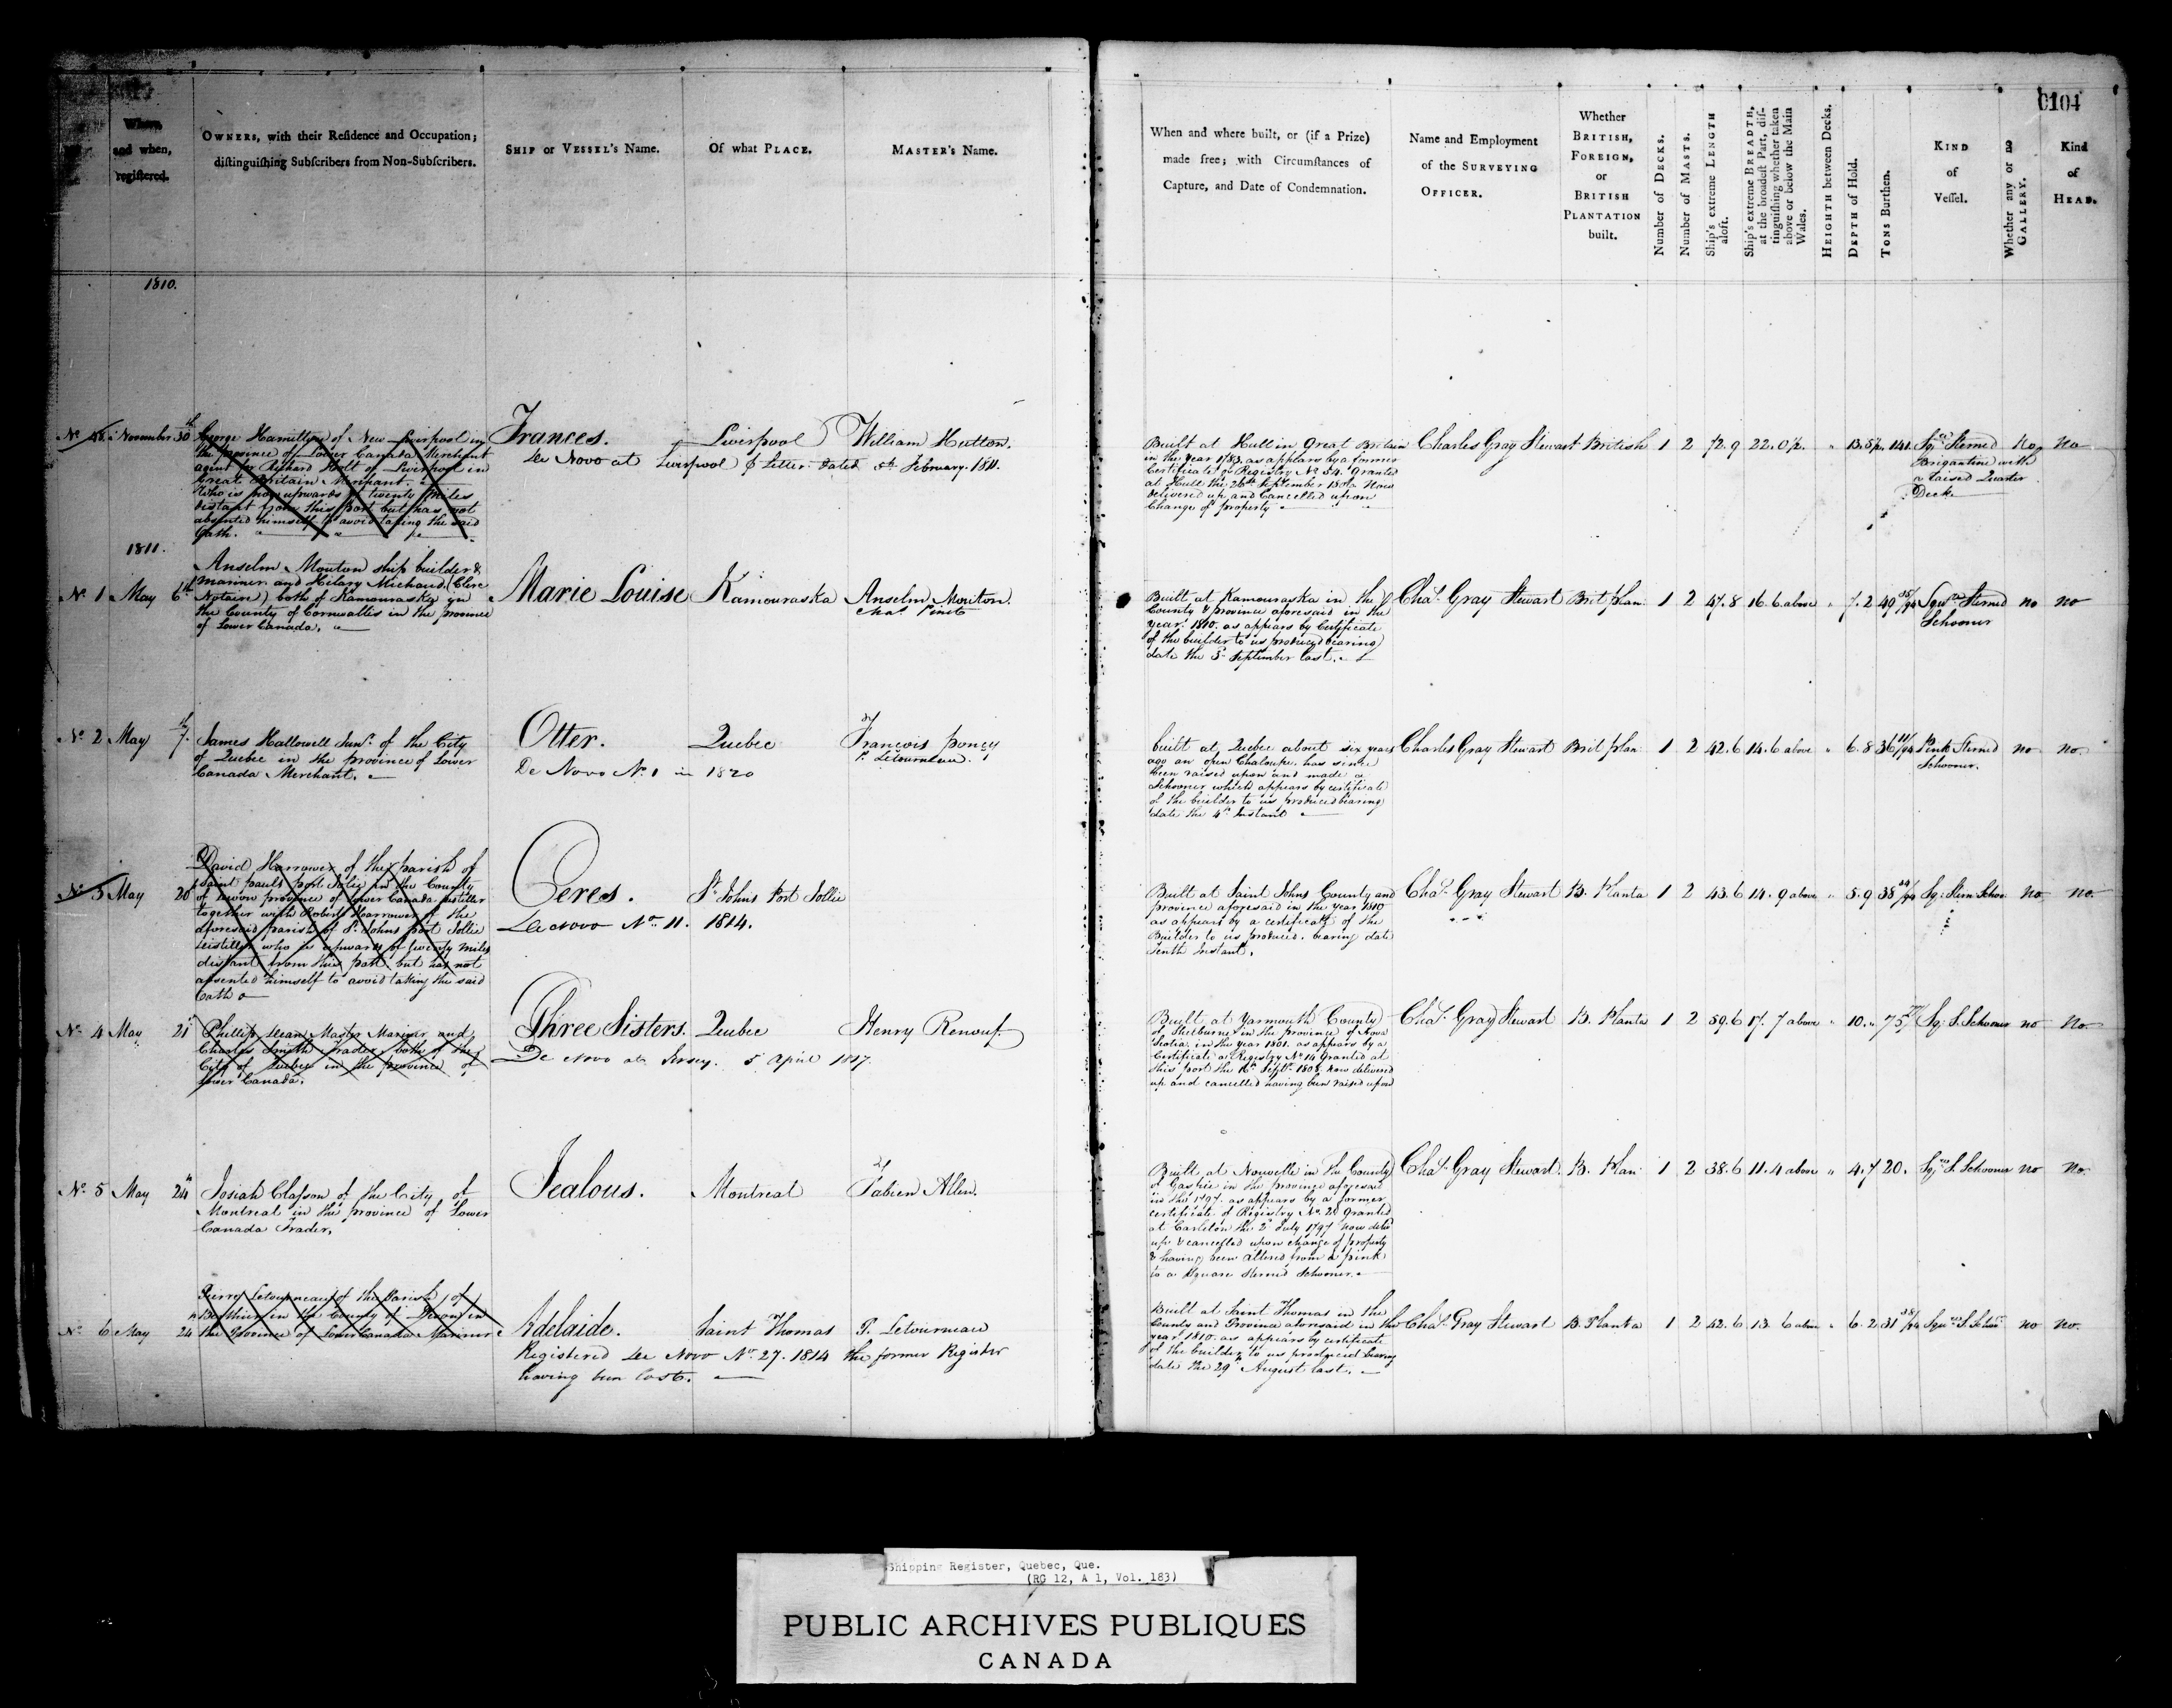 0104
When
and when,
registered.
OWNERS, with their Residence and Occupation;
distinguishing Subscribers from Non-Subscribers.
SHIP or VESSEL's Name.
Of what PLACE.
MASTER's Name.
When and where built, or (if a Prize)
made free; with Circumstances of
Capture, and Date of Condemnation.
Name and Employment
of the SURVEYING
OFFICER.
Whether
BRITISH,
FOREIGN,
or
BRITISH
PLANTATION
built.
Number of DECKS.
Number of MASTS.
Ship's extreme LENGTH
aloft.
Ship's extreme BREADTH,
at the broadest Part, dis-
tinguishing whether taken
above or below the Main
Wales.
HEIGHTH between Decks.
DEPTH of Hold.
TONS Burthen.
KIND
of
Vessel.
Whether any or no
GALLERY.
Kind
of
HEAD.
1810.
November 30th
George Hamilton of New Liverpool in
the province of Lower Canada Merchant
agent for Richard Holt of Liverpool in
Great Britain Merchant.
Who is now upwards of twenty Miles
distant from this port but has not
absented himself to avoid taking the said
Oath.
Frances. Liverpool William Hutton.
De Novo at Liverpool p Letter dated 5th February. 1811.
Built at Hull in Great Britain
in the year 1783. as appears by a former
Certificate of Registry No 54. Granted
at Hull the 26th September 1802 Now
delivered up and Cancelled upon
Change of property
Charles Gray Stewart British 1 2 72.9 22.0½. 141. Sqre Sterned No No
Brigantine with
a raised Quarter
Deck
1811.
No 1 May 6th
Anselm Mouton ship builder &
Mariner and Hilary Michaud (Clerc
Notaire) both of Kamouraska in
the County of Cornwallis in the province
of Lower Canada.
Marie Louise Kamouraska Anselm Mouton.
Built at Kamouraska in the
County & province aforesaid in the
year 1810. as appears by Certificate
of the builder to us produced bearing
date the 5 September last.
Chas. Gray Stewart Brit plan 1 2 47.8 16.6 above 7.2 49 35/94 Sqre Sterned no no
Schooner
No 2 May 7th
James Hallowell Junr. of the City
of Quebec in the province of Lower
Canada Merchant.
Otter. Quebec Francois poncy
P. Letourneau.
De Novo No. 1 in 1820
built at Quebec about six years
ago an open Chaloupe. has since
been raised upon and made a
Schooner which appears by certificate
of the builder to us produced bearing
date the 4th Instant
Charles Gray Stewart Brit plan 1 2 42.6 14.6 above 6.8 36 11/94 Pink Sterned no no.
Schooner.
No 3 May 20
David Harrower of the parish of
Saint pauls port Jolie in the County
of Devon province of Lower Canada distiller
together with Robert Harrower of the
aforesaid parish of St. Johns port Jollie
Distiller who is upwards of twenty miles
distant from this port but has not
absented himself to avoid taking the said
Oath
Ceres. St. Johns Port Jollie
De novo No. 11. 1814.
Built at Saint Johns County and
province aforesaid in the year 1810
as appears by a certificate of the
Builder to us produced. bearing date
Tenth Instant.
Chas. Gray Stewart B. Planta 1 2 43.6 14.9 above 5.9 38 24/94 Sq: Stern Schoo no no.
No. 4 May 21
Phillip Dean Master Mariner and
Charles Smith Trader both of the
City of Quebec in the province of
Lower Canada.
Three Sisters. Quebec Henry Renouf.
De Novo at Jersey. 5 April 1817.
Built at Yarmouth County
of Shelburne in the province of Nova
Scotia in the year 1801. as appears by a
Certificate of Registry No 14 Granted at
this port the 16th Septr. 1808. now delivered
up and cancelled having been raised upon
Chas. Gray Stewart B. Planta 1 2 59.6 17.7 above 10. 75 Sq: S. Schooner no No
No. 5 May 24th
Josiah Clafson of the City of
Montreal in the province of Lower
Canada Trader.
Jealous. Montreal Fabien Allen.
Built at Nouvelle in the County
of Gaspie in the province aforesaid
in the 1797. as appears by a former
certificate of Registry No. 20 Granted
at Carleton the 2d July 1797 now delivd
up & cancelled upon change of property
& having been altered from a pink
to a Square Sterned Schooner.
Chas. Gray Stewart. B. Plan 1 2 38.6 11.4 above 4.7 20. Sqre S. Schooner no no
No 6 May 24
Pierre Letourneau of the Parish of
Berthier in the County of Devon in
the Province of Lower Canada Mariner
Adelaide. Saint Thomas P. Letourneau
Registered De Novo No. 27. 1814 the former Register
having been lost.
Built at Saint Thomas in the
County and Province aforesaid in the
year 1810. as appears by certificate
of the builder to us produced bearing
date the 29th August last.
Chas. Gray Stewart B. Planta 1 2 42.6 13.6 above 6.2 31 38/94 Sqre S. Schoor no no.
Shipping Register, Quebec, Que.
(RG 12, A 1, Vol. 183)
PUBLIC ARCHIVES PUBLIQUES
CANADA